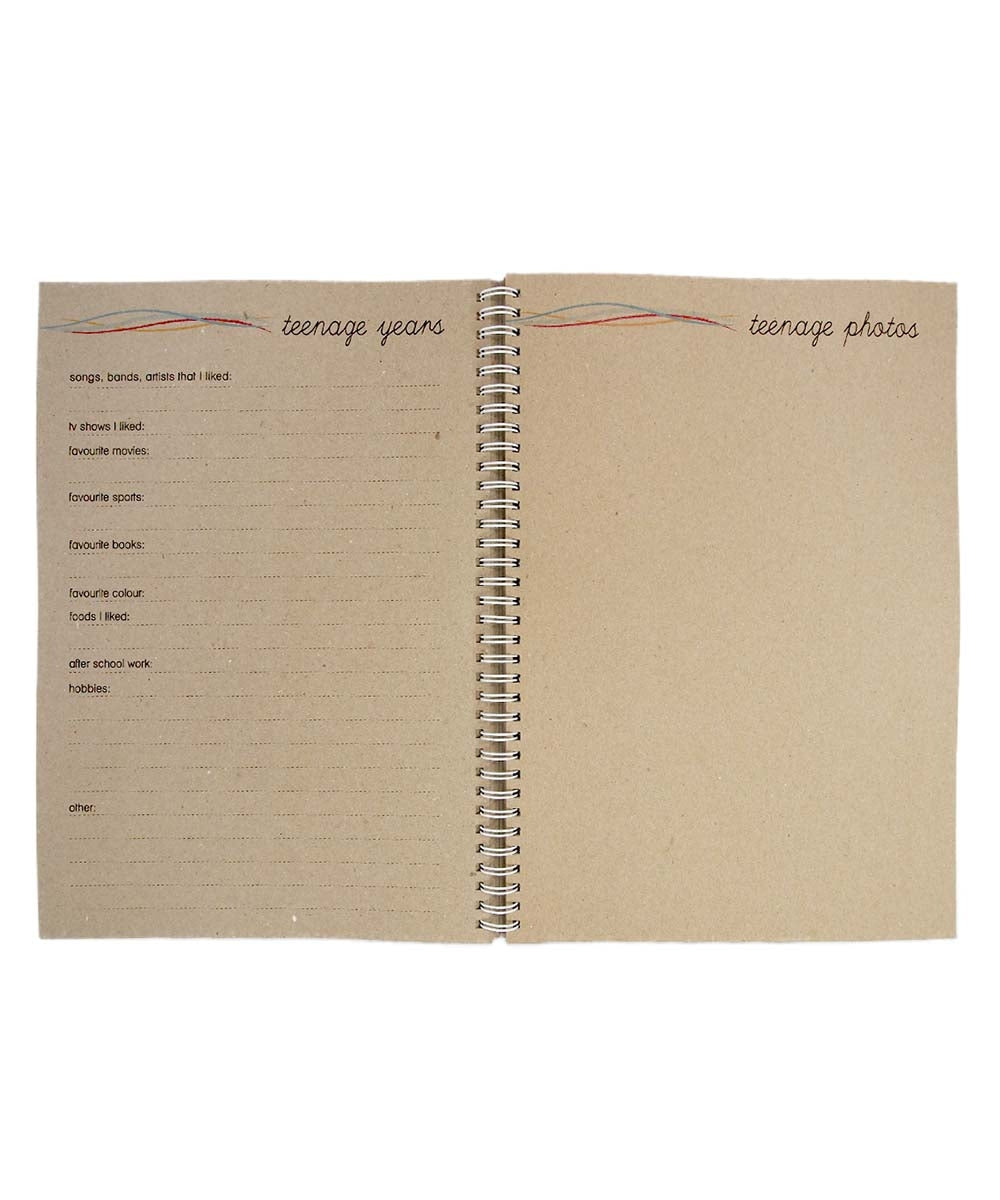 teenage years
songs, bands, artists that I liked:
tv shows I liked:
favourite movies:
favourite sports:
favourite books:
favourite colour:
foods I liked:
after school work:
hobbies:
other:
teenage photos